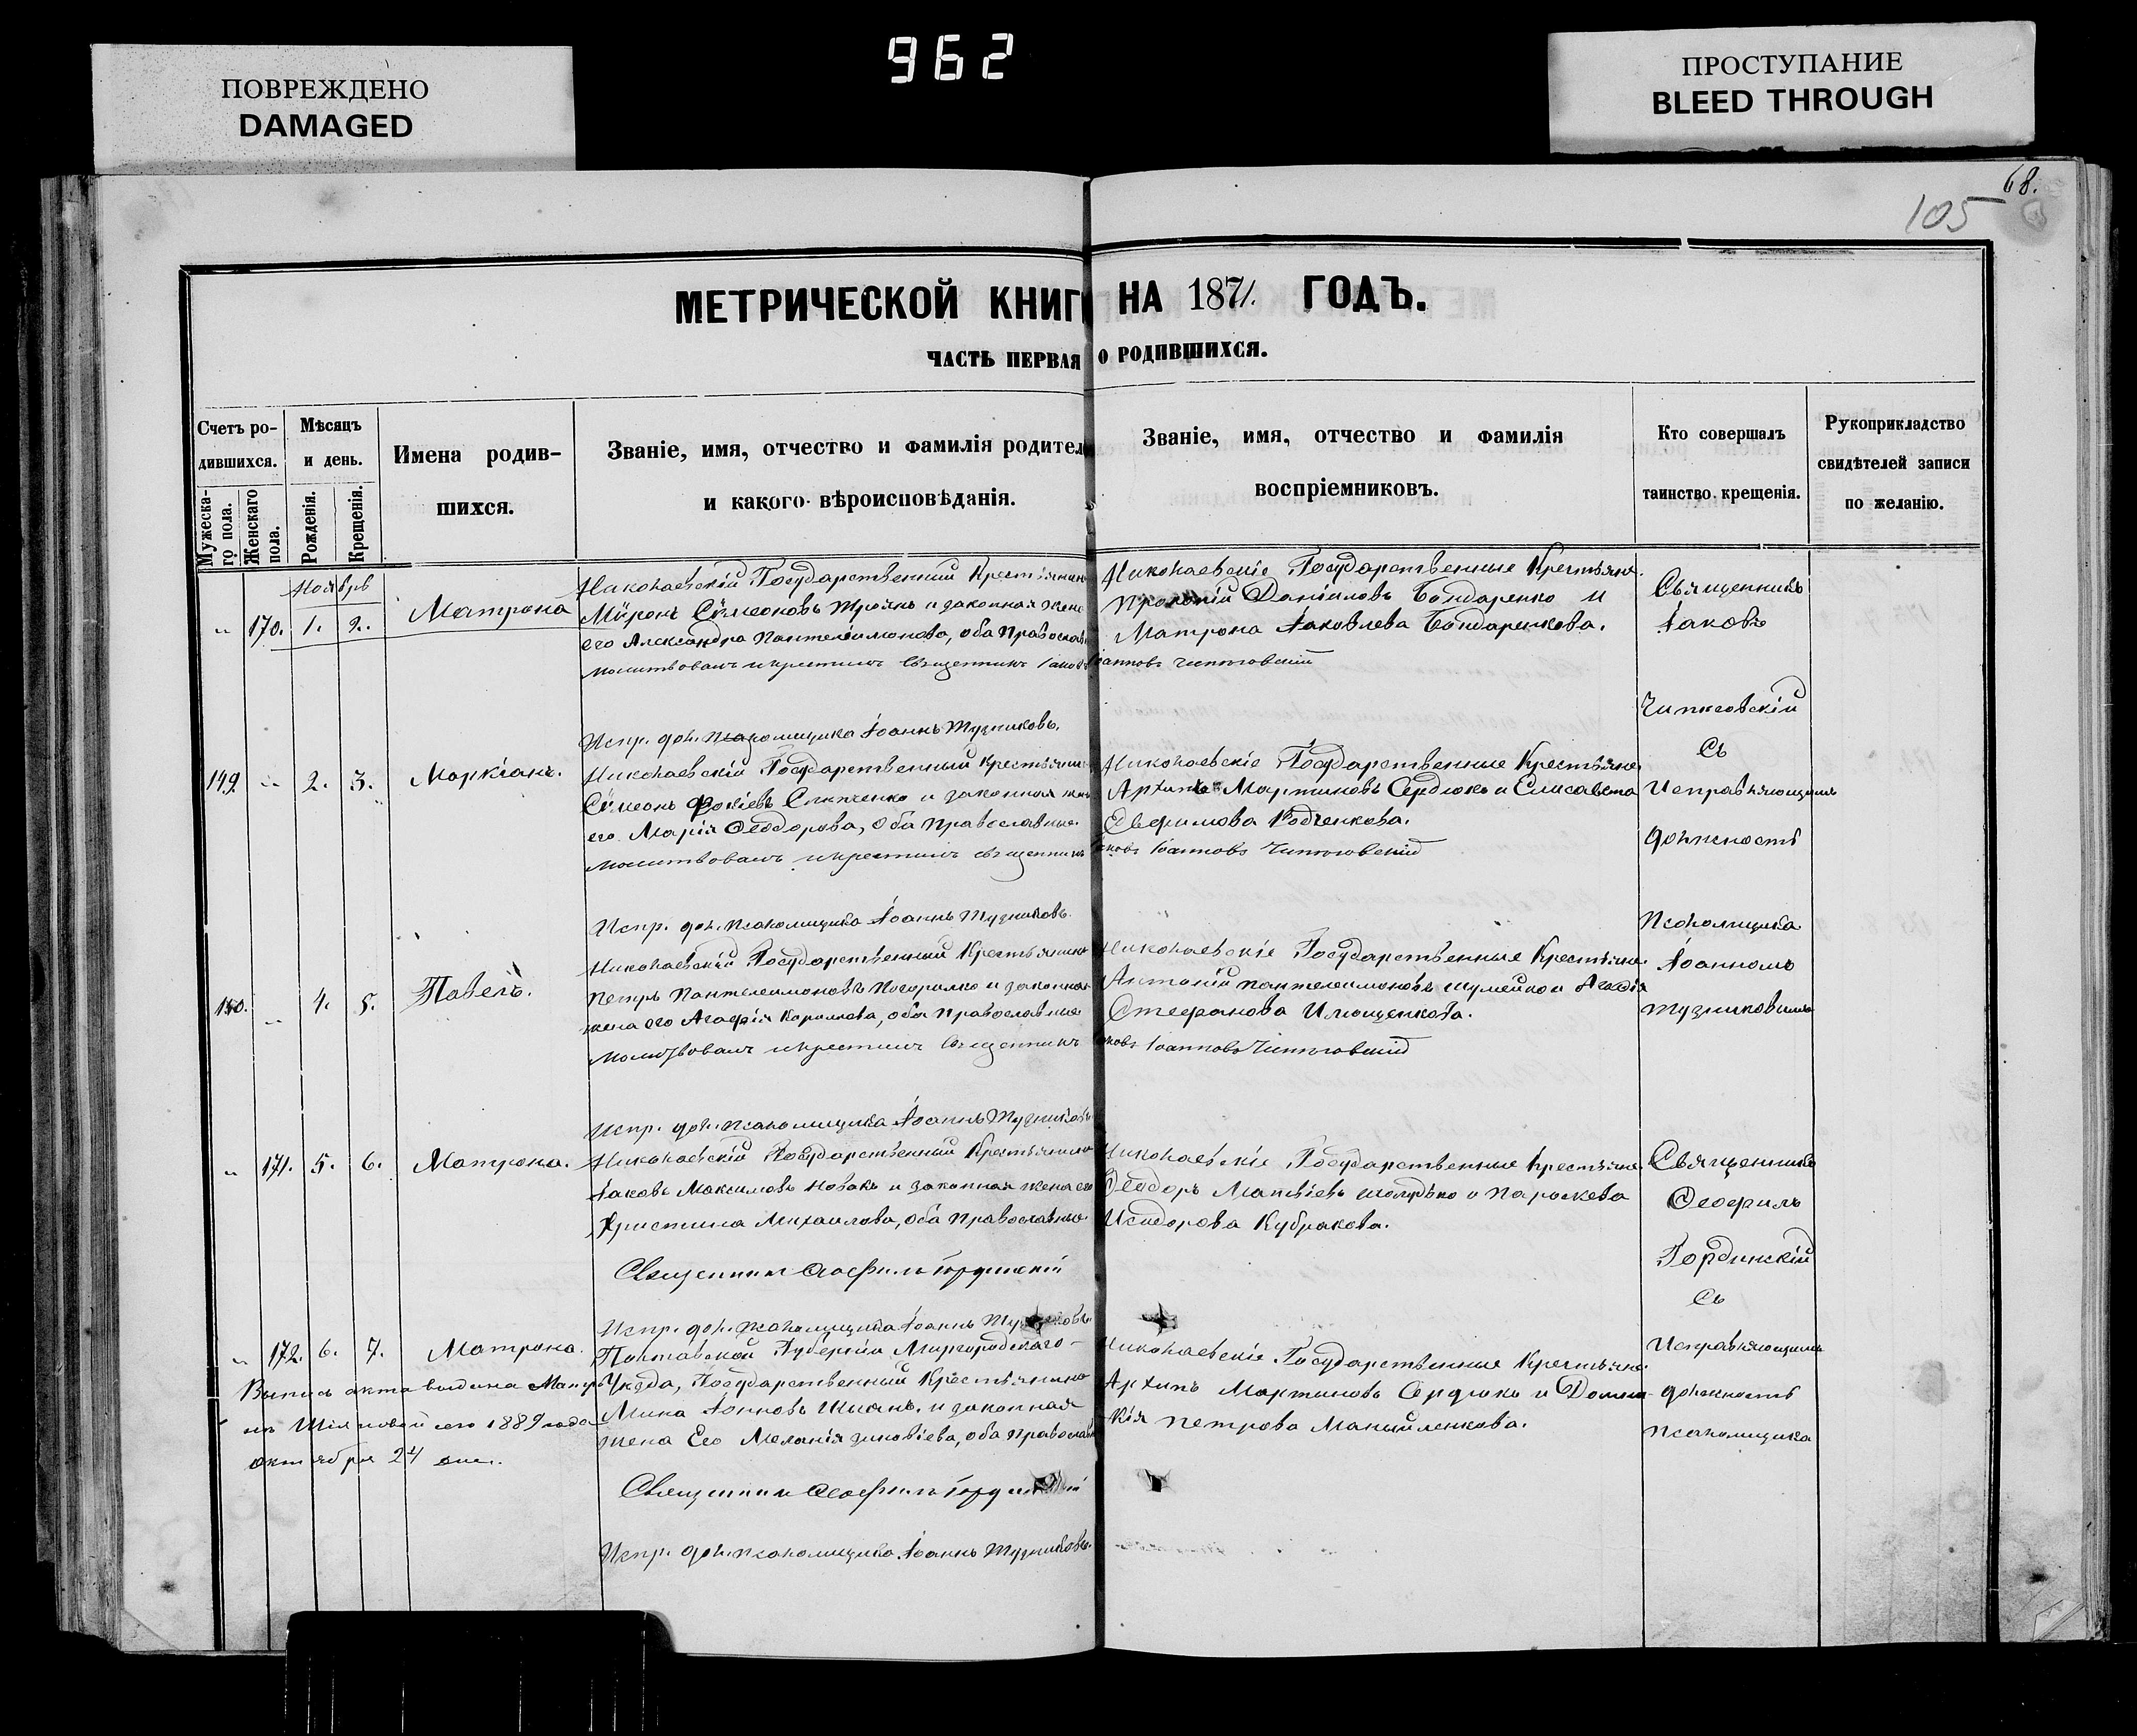 ПОВРЕЖДЕНО
DAMAGED
962
ПРОСТУПАНИЕ
BLEED THROUGH
68.
105
МЕТРИЧЕСКОЙ КНИГ НА 1871. ГОДЪ.
ЧАСТЬ ПЕРВАЯ О РОДИВШИХСЯ.
Счетъ ро-
дившихся.
Мужеска-
го пола.
Женскаго
пола.
Мѣсяцъ
и день.
Рожденія.
Крещенія.
Имена родив-
шихся.
Званіе, имя, отчество и фамилія родител
и какого вѣроисповѣданія.
Званіе, имя, отчество и фамилія
воспріемниковъ.
Кто совершалъ
таинство крещенія.
Рукоприкладство
свидѣтелей записи
по желанію.
Ноябрь
" 170. 1. 2. Матрона
Николаевскій Государственный Крестьянинъ
Миронъ Сѵмеоновъ Троянъ и законная жена
его Александра Пантелеимонова, оба Православ
молитвовалъ и крестилъ Священникъ Іаковъ Іоанновъ
Николаевскіе Государственные Крестьяне
Прокопій Даніиловъ Бондаренко и
Матрона Іаковлева Бондаренкова.
Священникъ
Іаковъ
Съ
Исправляющимъ
должность
Псаломщика
Іоанномъ
Испр. дол. псаломщика Іоаннъ
149. " 2. 3. Маркіанъ.
Николаевскій Государственный Крестьянин
Сѵмеонъ Фокіевъ и законная жена
его Марія Ѳеодорова, оба Православные
молитвовалъ и крестилъ священникъ Іаковъ Іоанновъ
Николаевскіе Государственные Крестьяне
Архипъ Мартиновъ Сердюкъ и Елисавета
Евфимова Родченкова.
Испр. дол. псаломщика Іоаннъ
150. " 4. 5. Павелъ.
Николаевскій Государственный Крестьянинъ
Петръ Пантелеимоновъ Погорилко и законная
жена его Агафія Корнилова, оба Православные
молитвовалъ и крестилъ Священникъ Іаковъ Іоанновъ
Николаевскіе Государственные Крестьяне
Антоній Пантелеимоновъ Шумейко и Агафія
Стефанова Илющенкова.
Испр. дол. псаломщика Іоаннъ
" 171. 5. 6. Матрона.
Николаевскій Государственный Крестьянинъ
Іаковъ Максимовъ Новакъ и законная жена его
Христина Михаилова, оба Православные
Священникъ Ѳеофилъ Гординскій
Николаевскіе Государственные Крестьяне
Ѳеодоръ Матвіевъ и Параскева
Исидорова Кубракова.
Священникъ
Ѳеофилъ
Гординскій
Съ
Исправляющимъ
должность
псаломщика
Испр. дол. псаломщика Іоаннъ
" 172. 6. 7. Матрона.
Полтавской Губерніи Миргородскаго
Уѣзда, Государственный Крестьянинъ
Мина и законная
жена Его Меланія Зиновіева, оба Православ
Священникъ Ѳеофилъ Гординскій
Николаевскіе Государственные Крестьяне
Архипъ Мартиновъ Сердюкъ и Домни-
кія Петрова Манойленкова.
Выпись акта выдана
1889 года
октября 24 дня.
Испр. дол. псаломщика Іоаннъ